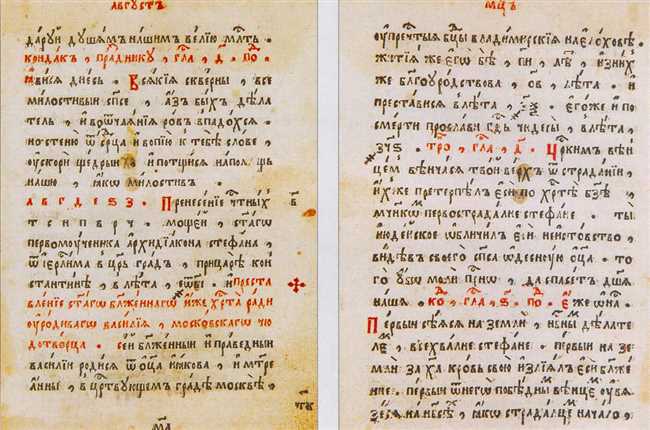 АВГУСТЪ
даруй душамъ нашимъ велію млⷭ҇ть
кондакъ, праⷥднику, глаⷭ҇, д҃. поⷣ.
ꙗвися днесь. Всякія скверны, все
милостивый сп҃се, азъ быхъ дѣла
тель, и въ ѿчаянія ровъ впадохся.
но стеню ѿ срⷣца и вопію к тебѣ слове,
ускори щедрый и потщися на помощь
нашю, ꙗкѡ милостивъ.
а в г д е ѕ з. Пренесеніе чⷭ҇тныхъ
мощей, ст҃агѡ
первомоученика архидїакона стефана,
ѿ іерⷭ҇лима в цр҃ь градъ, при царѣ кон
стантинѣ, в лѣта,
и преста
вленіе ст҃агѡ бл҃женнагѡ иже хрⷭ҇та ради
оуродивагѡ василїа, московскагѡ чю
дотворца. сей бл҃женный и праведный
василїи родися ѿ оц҃а иакова, и мт҃ре
анны, в црⷭ҇твующемъ градѣ москвѣ,
МЦ҃Ъ
жития же егѡ бѣ, лѣ, и з них
же благоуродствова, лѣта. и
преставися в лѣта, егоже и по
смерти прослави гдⷭ҇ь чюдесы, в лѣта,
зч҃ѕ. тро, глаⷭ҇, д҃. Цр҃кимъ вѣн
цем вѣнчася твой верхъ ѿ страданїи,
ихже претерпѣлъ еси по хрⷭ҇тѣ бз҃ѣ,
мч҃никѡ первострадалне стефане. ты
июдейское ѡбличилъ еси неистовство,
видѣвъ своего сп҃са ѡдесную оц҃а.
того убѡ моли прⷭ҇нѡ, да спасетъ дш҃а
наша. ко, глаⷭ҇, ѕ҃. поⷣ. Еже ѡ на.
Первый сѣяся на земли, нбⷭ҇ны дѣлате
ле, всехвалне стефане. первый на зе
мли за хⷭ҇а кровь свою излиялъ еси блаже
не. первый ѿ негѡ побѣды вѣнце оувя
зеся на нб҃сѣ, ꙗкѡ страдалце начало,